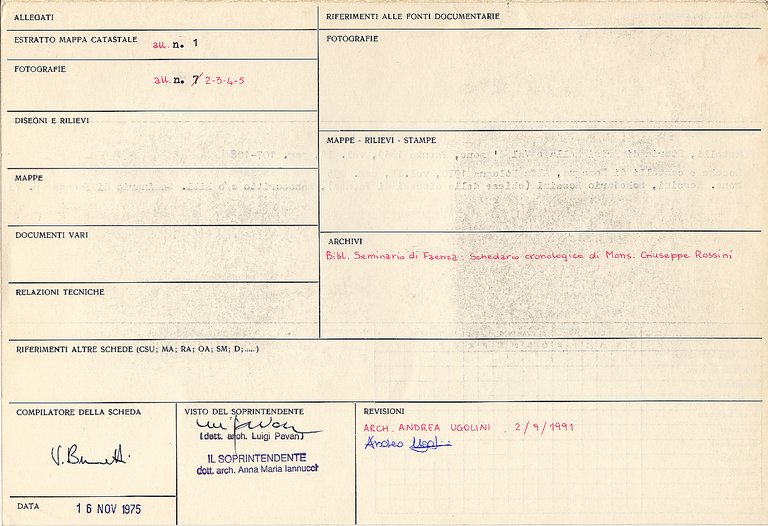 ALLEGATI
ESTRATTO MAPPA CATASTALE all. n. 1
FOTOGRAFIE
all. n. 7 2-3-4-5
DISEGNI E RILIEVI
MAPPE
DOCUMENTI VARI
RELAZIONI TECNICHE
RIFERIMENTI ALLE FONTI DOCUMENTARIE
FOTOGRAFIE
MAPPE - RILIEVI - STAMPE
ARCHIVI
Bibl. Seminario di Faenza: Schedario cronologico di Mons. Giuseppe Rossini
RIFERIMENTI ALTRE SCHEDE (CSU; MA; RA; OA; SM; D;.....)
COMPILATORE DELLA SCHEDA
DATA 16 NOV 1975
VISTO DEL SOPRINTENDENTE
(dott. arch. Luigi Pavan)
IL SOPRINTENDENTE
dott. arch. Anna Maria Iannucci
REVISIONI
ARCH. ANDREA UGOLINI , 2/9/1991